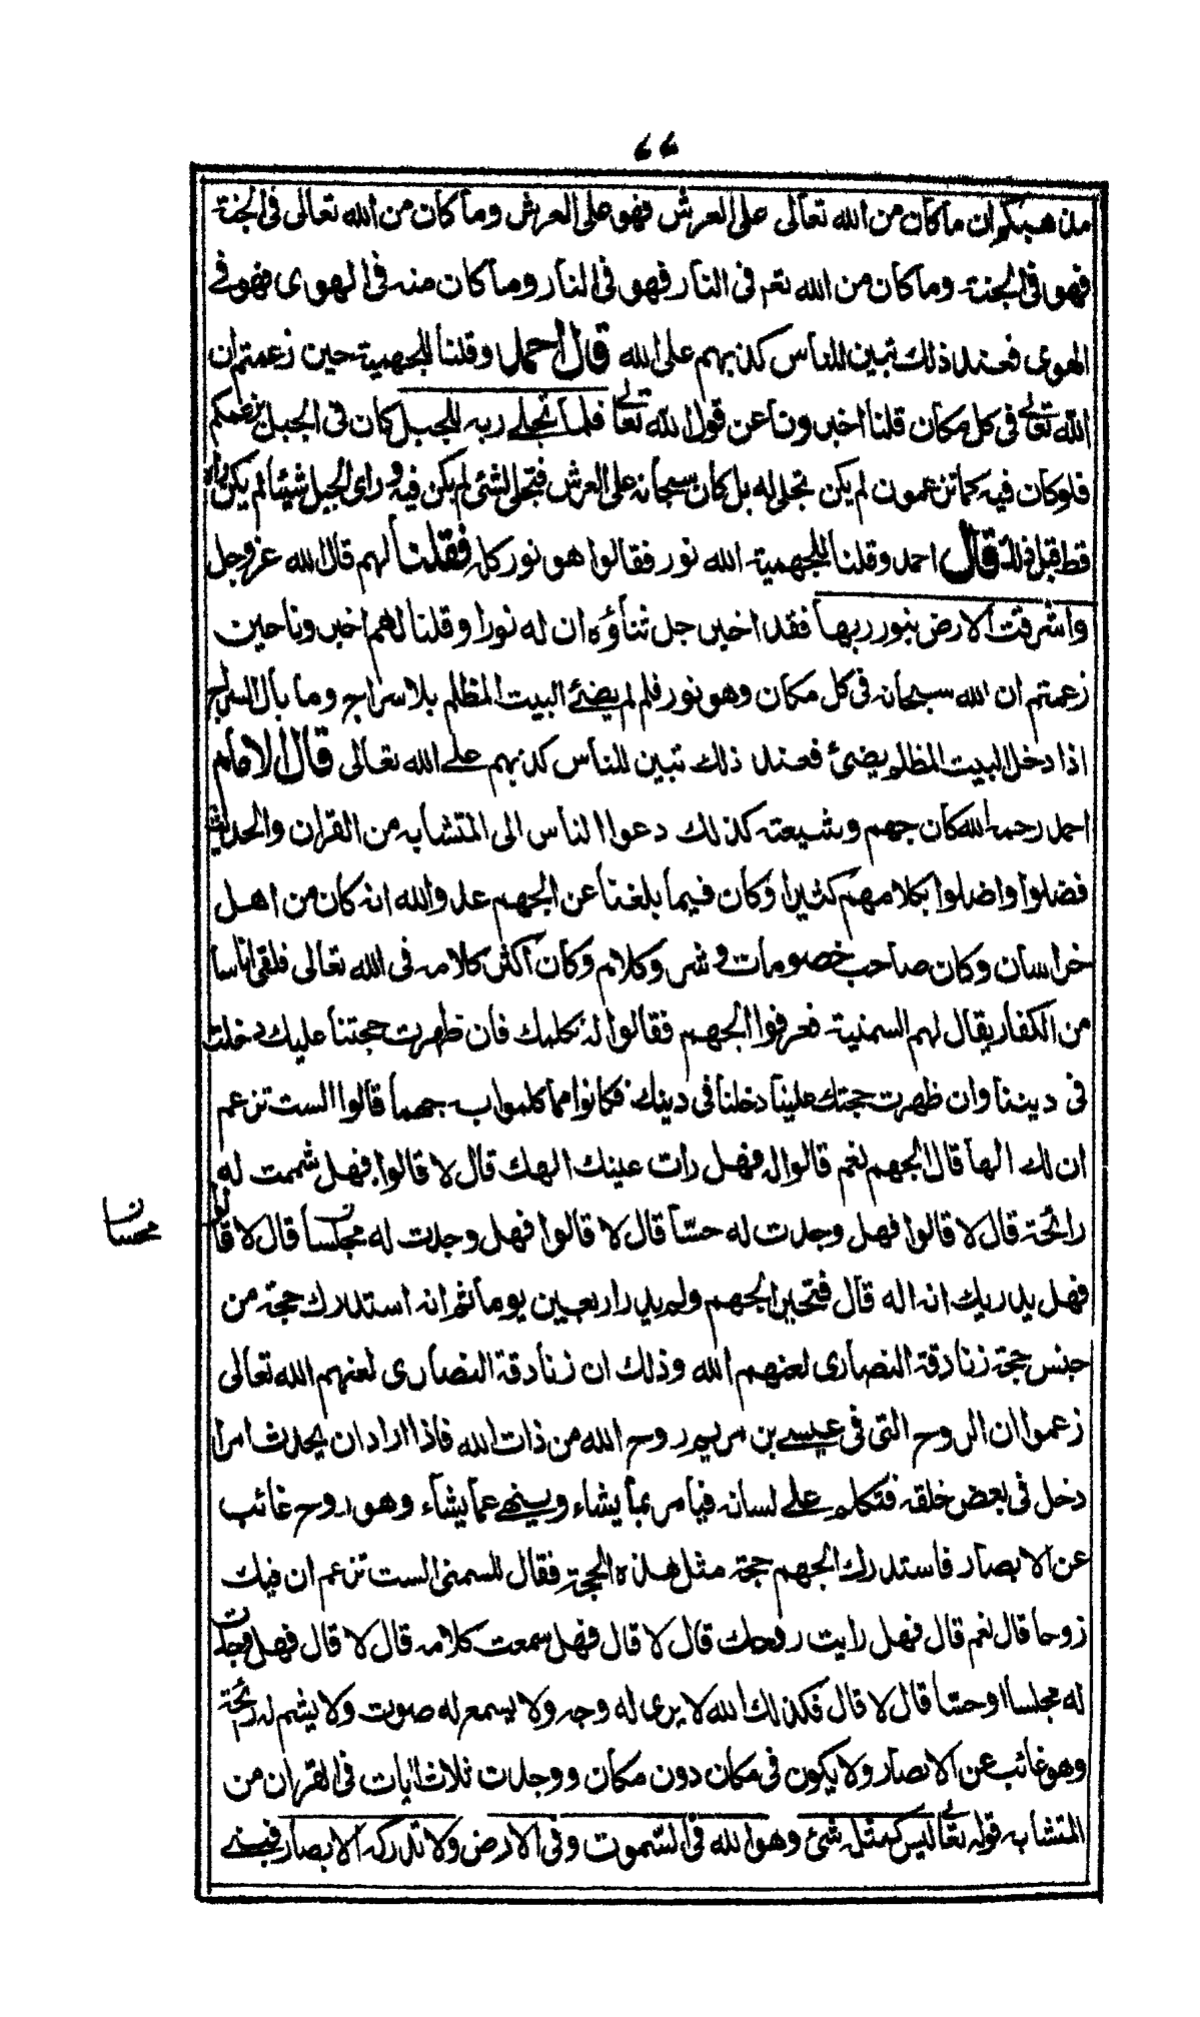 ٤٤
مذهبكم ان ما كان من الله تعالى على العرش فهو على العرش وما كان من الله تعالى فى الجنة
فهو فى الجنة وما كان من الله تعم فى النار فهو فى النار وما كان منه فى الهوى فهو فے
الهوى فعند ذلك تبين للناس كذبهم على الله قال احمد وقلنا للجهمية حين زعمتم ان
الله تعالے فى كل مكان قلنا اخبرونا عن قول الله تعالے فلما تجلے ربه للجبل كان فى الجبل بزعمكم
فلو كان فيه كما تزعمون لم يكن تجلى له بل كان سبحانه على العرش فتجلى لشئ لم يكن فيه و راى الجبل شيئا لم يكن راه
قط قبل ذلك قال احمد وقلنا للجهمية الله نور فقالوا هو نور كله فقلنا لهم قال الله عز وجل
واشرقت الارض بنور ربها فقد اخبر جل ثناؤه ان له نورا وقلنا لهم اخبرونا حين
زعمتم ان الله سبحانه فى كل مكان وهو نور فلم لم يضئ البيت المظلم بلا سراج وما بال السراج
اذا دخل البيت المظلم يضئ فعند ذلك تبين للناس كذبهم علے الله تعالى قال الامام
احمد رحمه الله كان جهم وشيعته كذلك دعوا الناس الى المتشابه من القران والحديث
فضلوا واضلوا بكلامهم كثيرا وكان فيما بلغنا عن الجهم عدو الله انه كان من اهل
خراسان وكان صاحب خصومات و شر وكلام وكان اكثر كلامه فى الله تعالى فلقى اناسا
من الكفار يقال لهم السمنية فعرفوا الجهم فقالوا له نكلمك فان ظهرت حجتنا عليك دخلت
فى ديننا وان ظهرت حجتك علينا دخلنا فى دينك فكانوا مما كلموا به جهما قالوا الست تزعم
ان لك الها قال الجهم نعم قالوا له فهل رات عينك الهك قال لا قالوا فهل شممت له
رائحة قال لا قالوا فهل وجدت له حسّا قال لا قالوا فهل وجدت له مجلسا قال لا قالوا
محسان
فهل يدريك انه اله قال فتحير الجهم ولم يدر اربعين يوما ثم انه استدرك حجة من
جنس حجة زنادقة النصارى لعنهم الله وذلك ان زنادقة النصارى لعنهم الله تعالى
زعموا ان الروح التى فى عيسے بن مريم روح الله من ذات الله فاذا اراد ان يحدث امرا
دخل فى بعض خلقه فتكلم علے لسانه فيامر بما يشاء وينهے عما يشاء وهو روح غائب
عن الابصار فاستدرك الجهم حجة مثل هذه الحجة فقال للسمنى الست تزعم ان فيك
روحا قال نعم قال فهل رايت روحك قال لا قال فهل سمعت كلامه قال لا قال فهل وجدت
له مجلسا او حسّا قال لا قال فكذلك الله لا يرى له وجه ولا يسمع له صوت ولا يشم له رائحة
وهو غائب عن الابصار ولا يكون فى مكان دون مكان ووجدت ثلاث ايات فى القران من
المتشابه قوله تعالے ليس كمثله شئ وهو الله فى السموت وفى الارض ولا تدركه الابصار فبنے